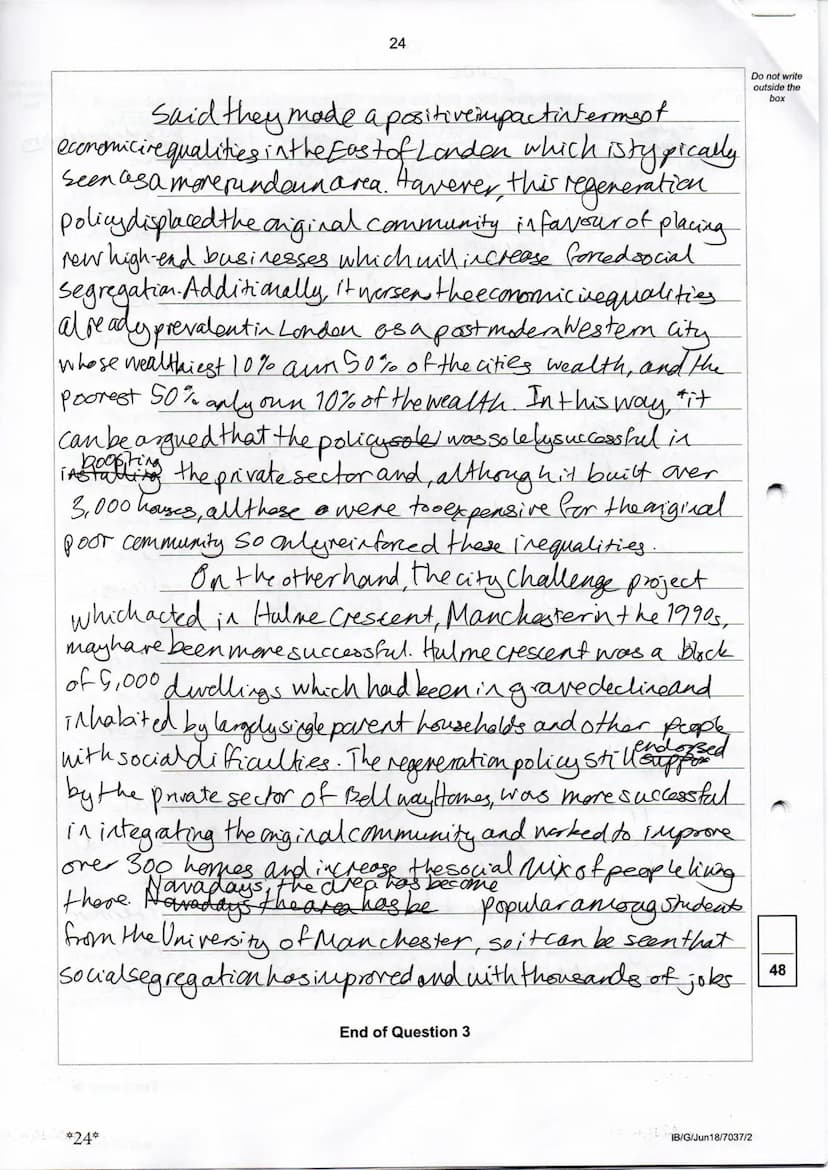 24
Do not write
outside the
box
Said they made a positive impact in terms of
economic inequalities in the East of London which is typically
seen as a more rundown area. However, this regeneration
policy displaced the original community in favour of placing
new high-end businesses which will increase forced social
segregation. Additionally, it worsens the economic inequalities
already prevalent in London as a post modern Western city
whose wealthiest 10% own 50% of the cities wealth, and the
poorest 50% only own 10% of the wealth. In this way, it
can be argued that the policy sole was solely successful in
boosting
installing the private sector and, although it built over
3,000 houses, all these were too expensive for the original
poor community so only reinforced these inequalities.
On the other hand, the city Challenge project
which acted in Hulme Crescent, Manchester in the 1990s,
may have been more successful. Hulme crescent was a block
of 5,000 dwellings which had been in grave decline and
inhabited by largely single parent households and other people
endorsed
with social difficulties. The regeneration policy still suppor
by the private sector of Bellway Homes, was more successful
in integrating the original community and worked to improve
over 300 homes and increase the social mix of people living
Nowadays, the area has become
there. Nowadays the area has be popular among students
from the University of Manchester, so it can be seen that
social segregation has improved and with thousands of jobs
48
End of Question 3
*24*
IB/G/Jun18/7037/2